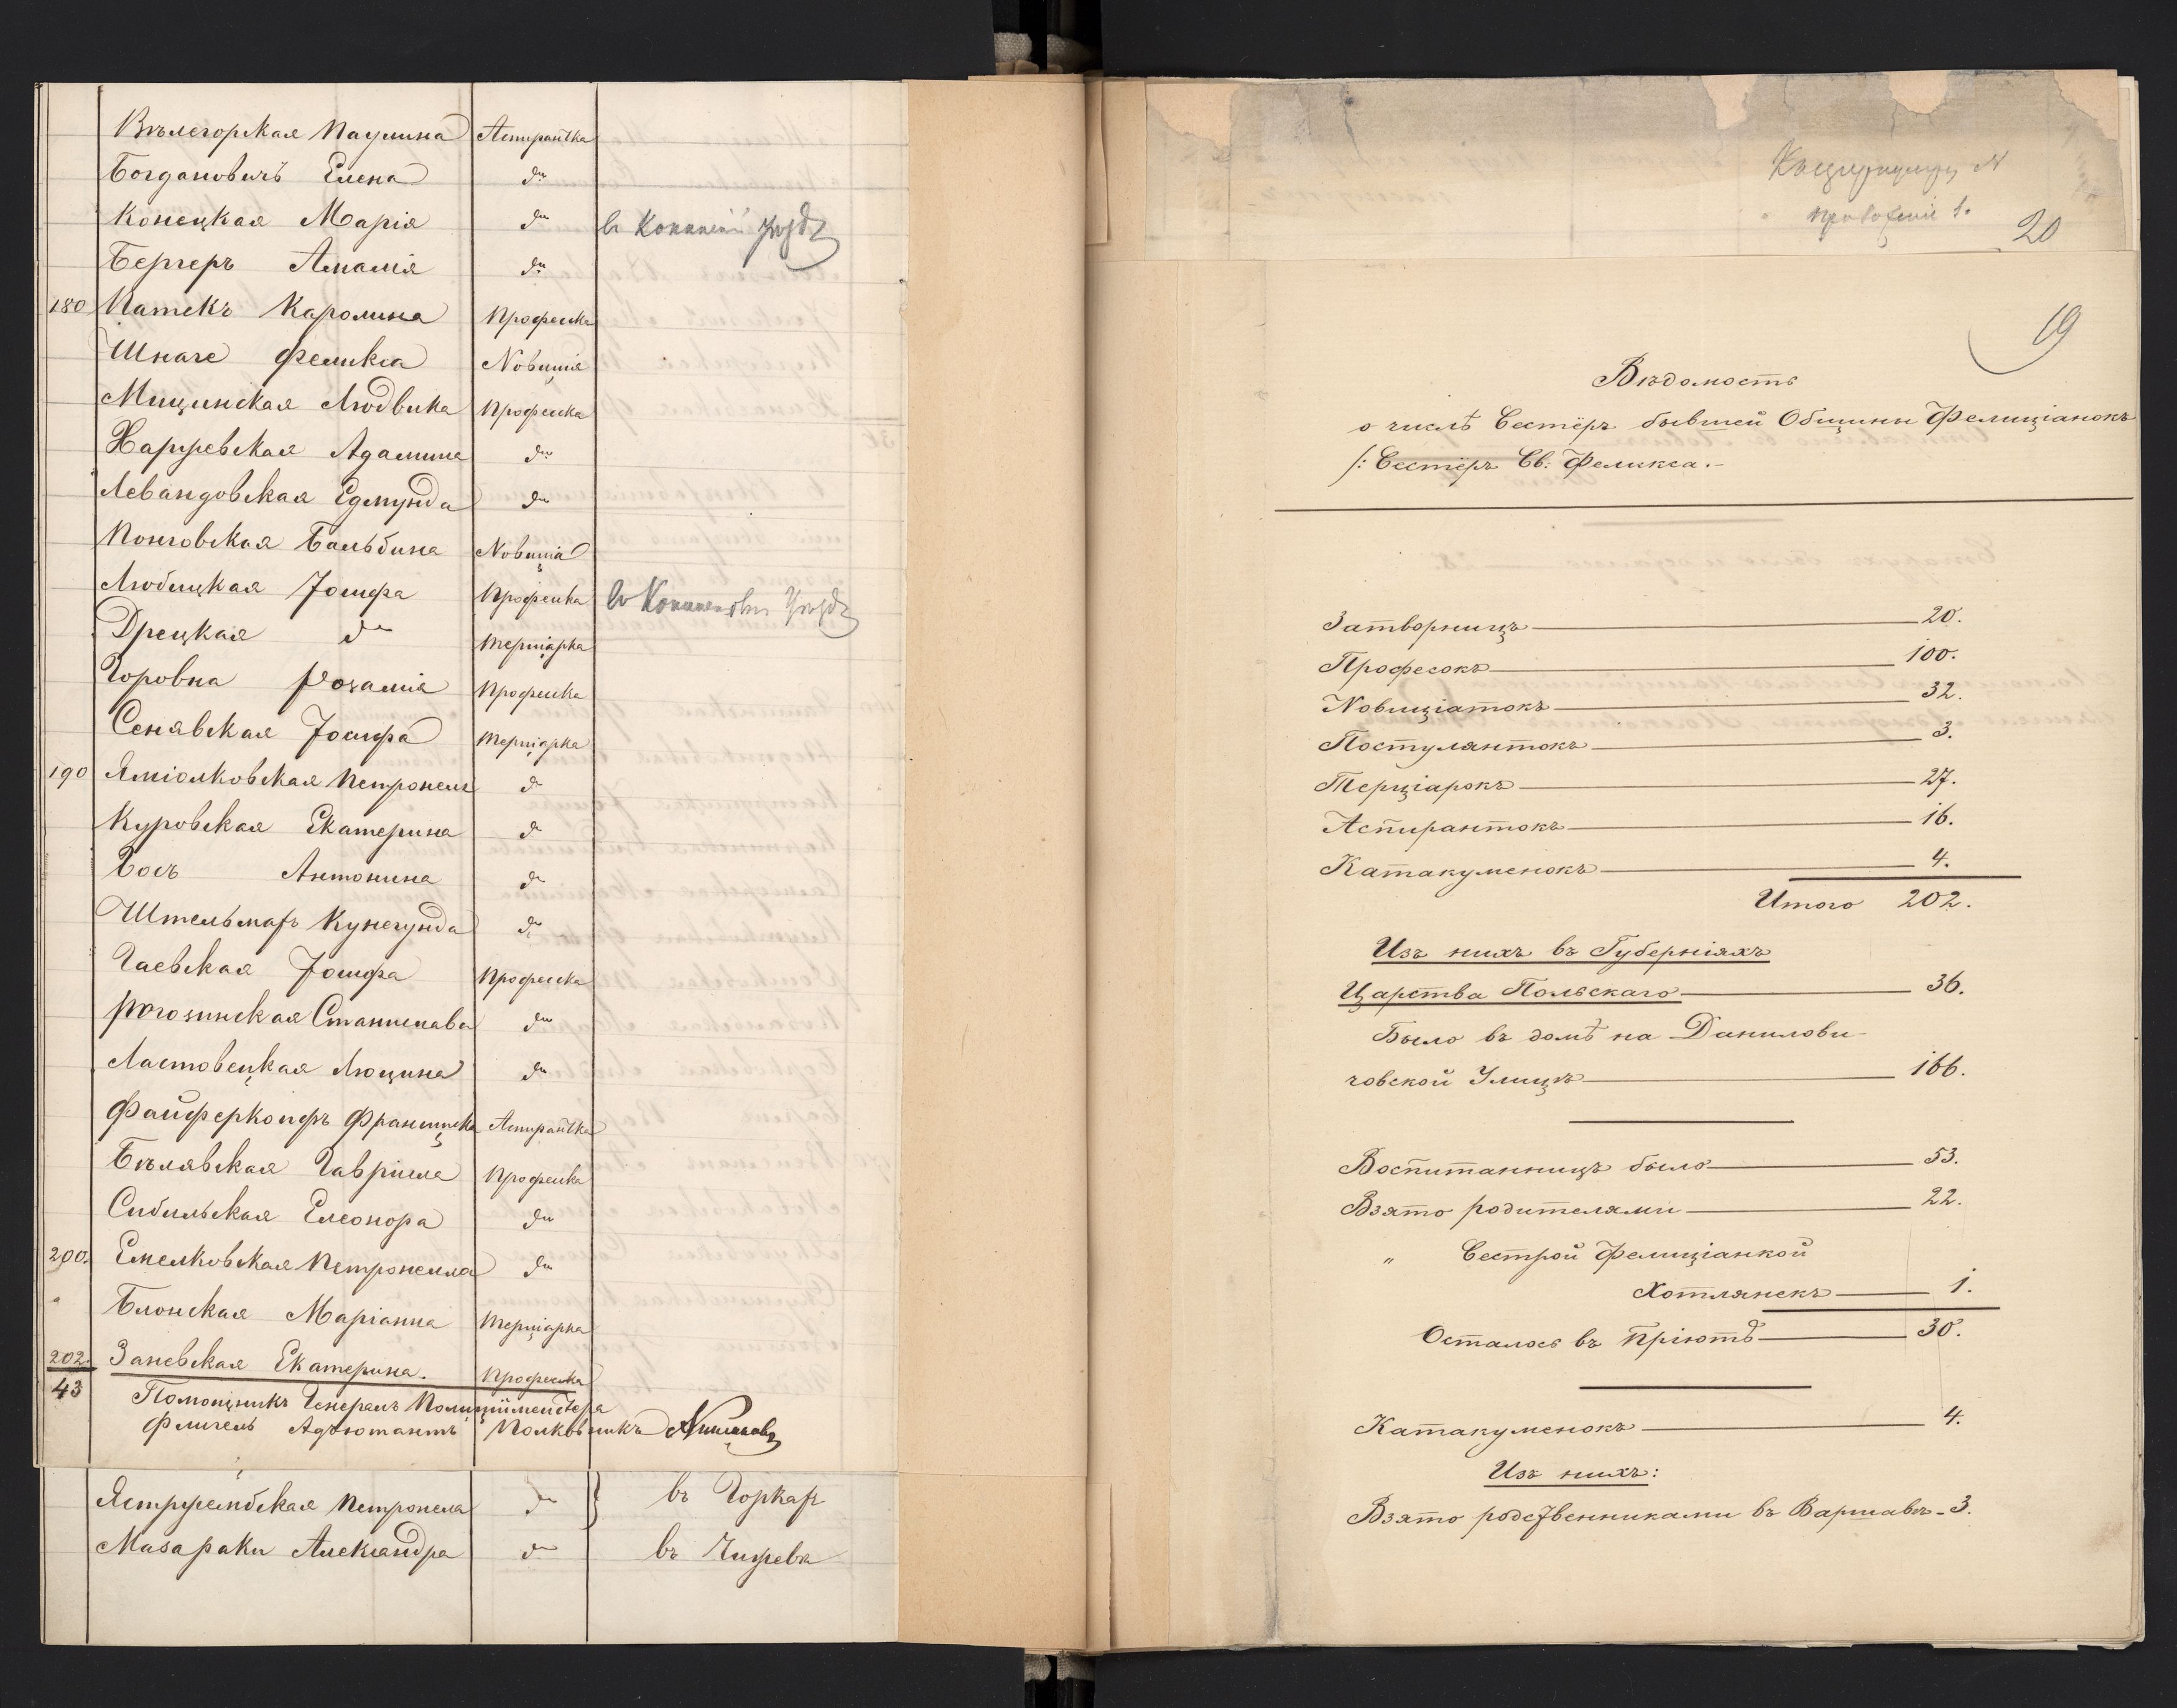 Вѣлегорская Паулина Аспирантка
Богдановичъ Елена дто
Конецкая Марія дто
Бергеръ Амалія дто
180 Патекъ Каролина Професка
Шнаге Феликса Новиція
Мищинская Людвика Професка
Наржевская Адамина дто
Левандовская Едмунда дто
Понговская Бальбина Новиція
Любицкая Іосифа Професка
Дрецкая дто Терціарка
Горовна Розалія Професка
Сенявская Іосифа Терціарка
190 Яміолковская Петронеля дто
Куровская Екатерина дто
Босъ Антонина дто
Штельмахъ Кунегунда дто
Гаевская Іосифа Професка
Рогозинская Станислава дто
Ластовецкая Люцина дто
Файферкопфъ Францишка Аспирантка
Бѣлявская Гавріела Професка
Сибильская Елеонора дто
200. Емелковская Петронелла дто
Блонская Маріанна Терціарка
202. Заневская Екатерина. Професка
43
Помощникъ Генералъ Полиціймейстера
Флигель Адъютантъ Полковникъ
Ястржембская Петронела дто въ Горкахъ
Мазараки Александра дто въ Чижева
20
19
Вѣдомость
о числѣ Сестёръ бывшей Общины Фелиціанокъ
/: Сестёръ Св: Феликса.–
Затворницъ 20.
Професокъ 100.
Новиціатокъ 32.
Постулянтокъ 3.
Терціарокъ 27.
Аспирантокъ 16.
Катакуменокъ 4.
Итого 202.
Изъ нихъ въ Губерніяхъ
Царства Польскаго 36.
Было въ домѣ на Данилови-
човской Улицѣ 166.
Воспитанницъ было 53.
Взято родителями 22.
„ Сестрой Фелиціанкой
Хотлянекъ 1.
Осталось въ Пріютѣ 30.
Катакуменокъ 4.
Изъ нихъ:
Взято родственниками въ Варшавѣ - 3.